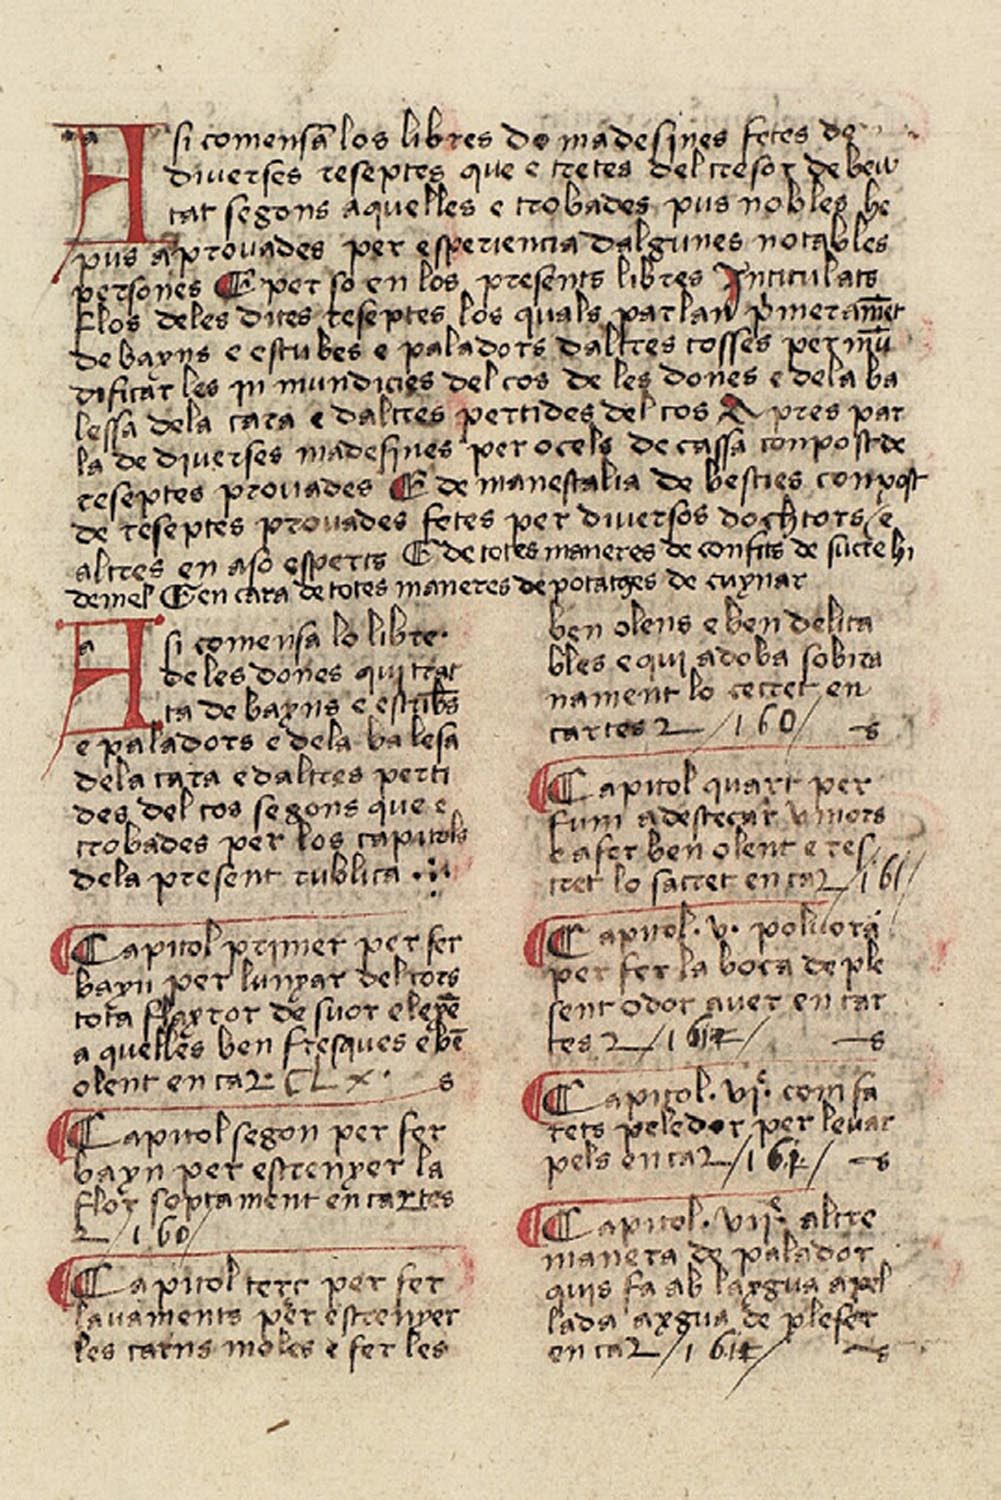 A si comensa los libres de madesines fetes de
diverses reseptes que e tretes del tresor de beu
tat segons aquelles e trobades pus nobles he
pus aprouades per esperiencia dalgunes notables
persones E per so en los presents libres Intitulats
Flos deles dites reseptes los quals parlan primerament
de bayns e estubes e paladors daltres cosses per mu
dificar les inmundicies del cos de les dones e dela ba
lessa dela cara e daltres pertides del cos A pres par
la de diverses madesines per ocels de cassa conpost de
reseptes prouades E de manescalia de besties conpost
de reseptes prouades fetes per diversos dochtors / e
altres en aso esperts E de totes maneres de confits de sucre hi
de mel E encara de totes maneres de potatges de cuynar
A si comensa lo libre
de les dones qui trac
ta de bayns e estubes
e paladors e dela balesa
dela cara e daltres perti
des del cos segons que e
trobades per los capitols
dela present rublica
Capitol primer per fer
bayn per lunyar del cors
tota flayror de suor e
aquelles ben fresques e be
olent en car CLX s
Capitol segon per fer
bayn per estrenyer la
flor en cartes
/ 160 /
Capitol terç per fer
lauaments per estrenyer
les carns moles e fer les
ben olens e ben delita
bles e qui adoba sobira
nament lo cecret en
cartes / 160 / s
Capitol quart per
fum a destecar vmors
e a fer ben olent e res
tret lo sacret en car / 161 /
Capitol · v · poluora
per fer la boca de ple
sent odor auer en car
tes / 161 / s
Capitol · vi · com fa
rets peledor per leuar
pels en car / 161 / s
Capitol · vii · altre
manera de palador
quis fa ab laygua apel
lada aygua de plefer
en car / 161 / s